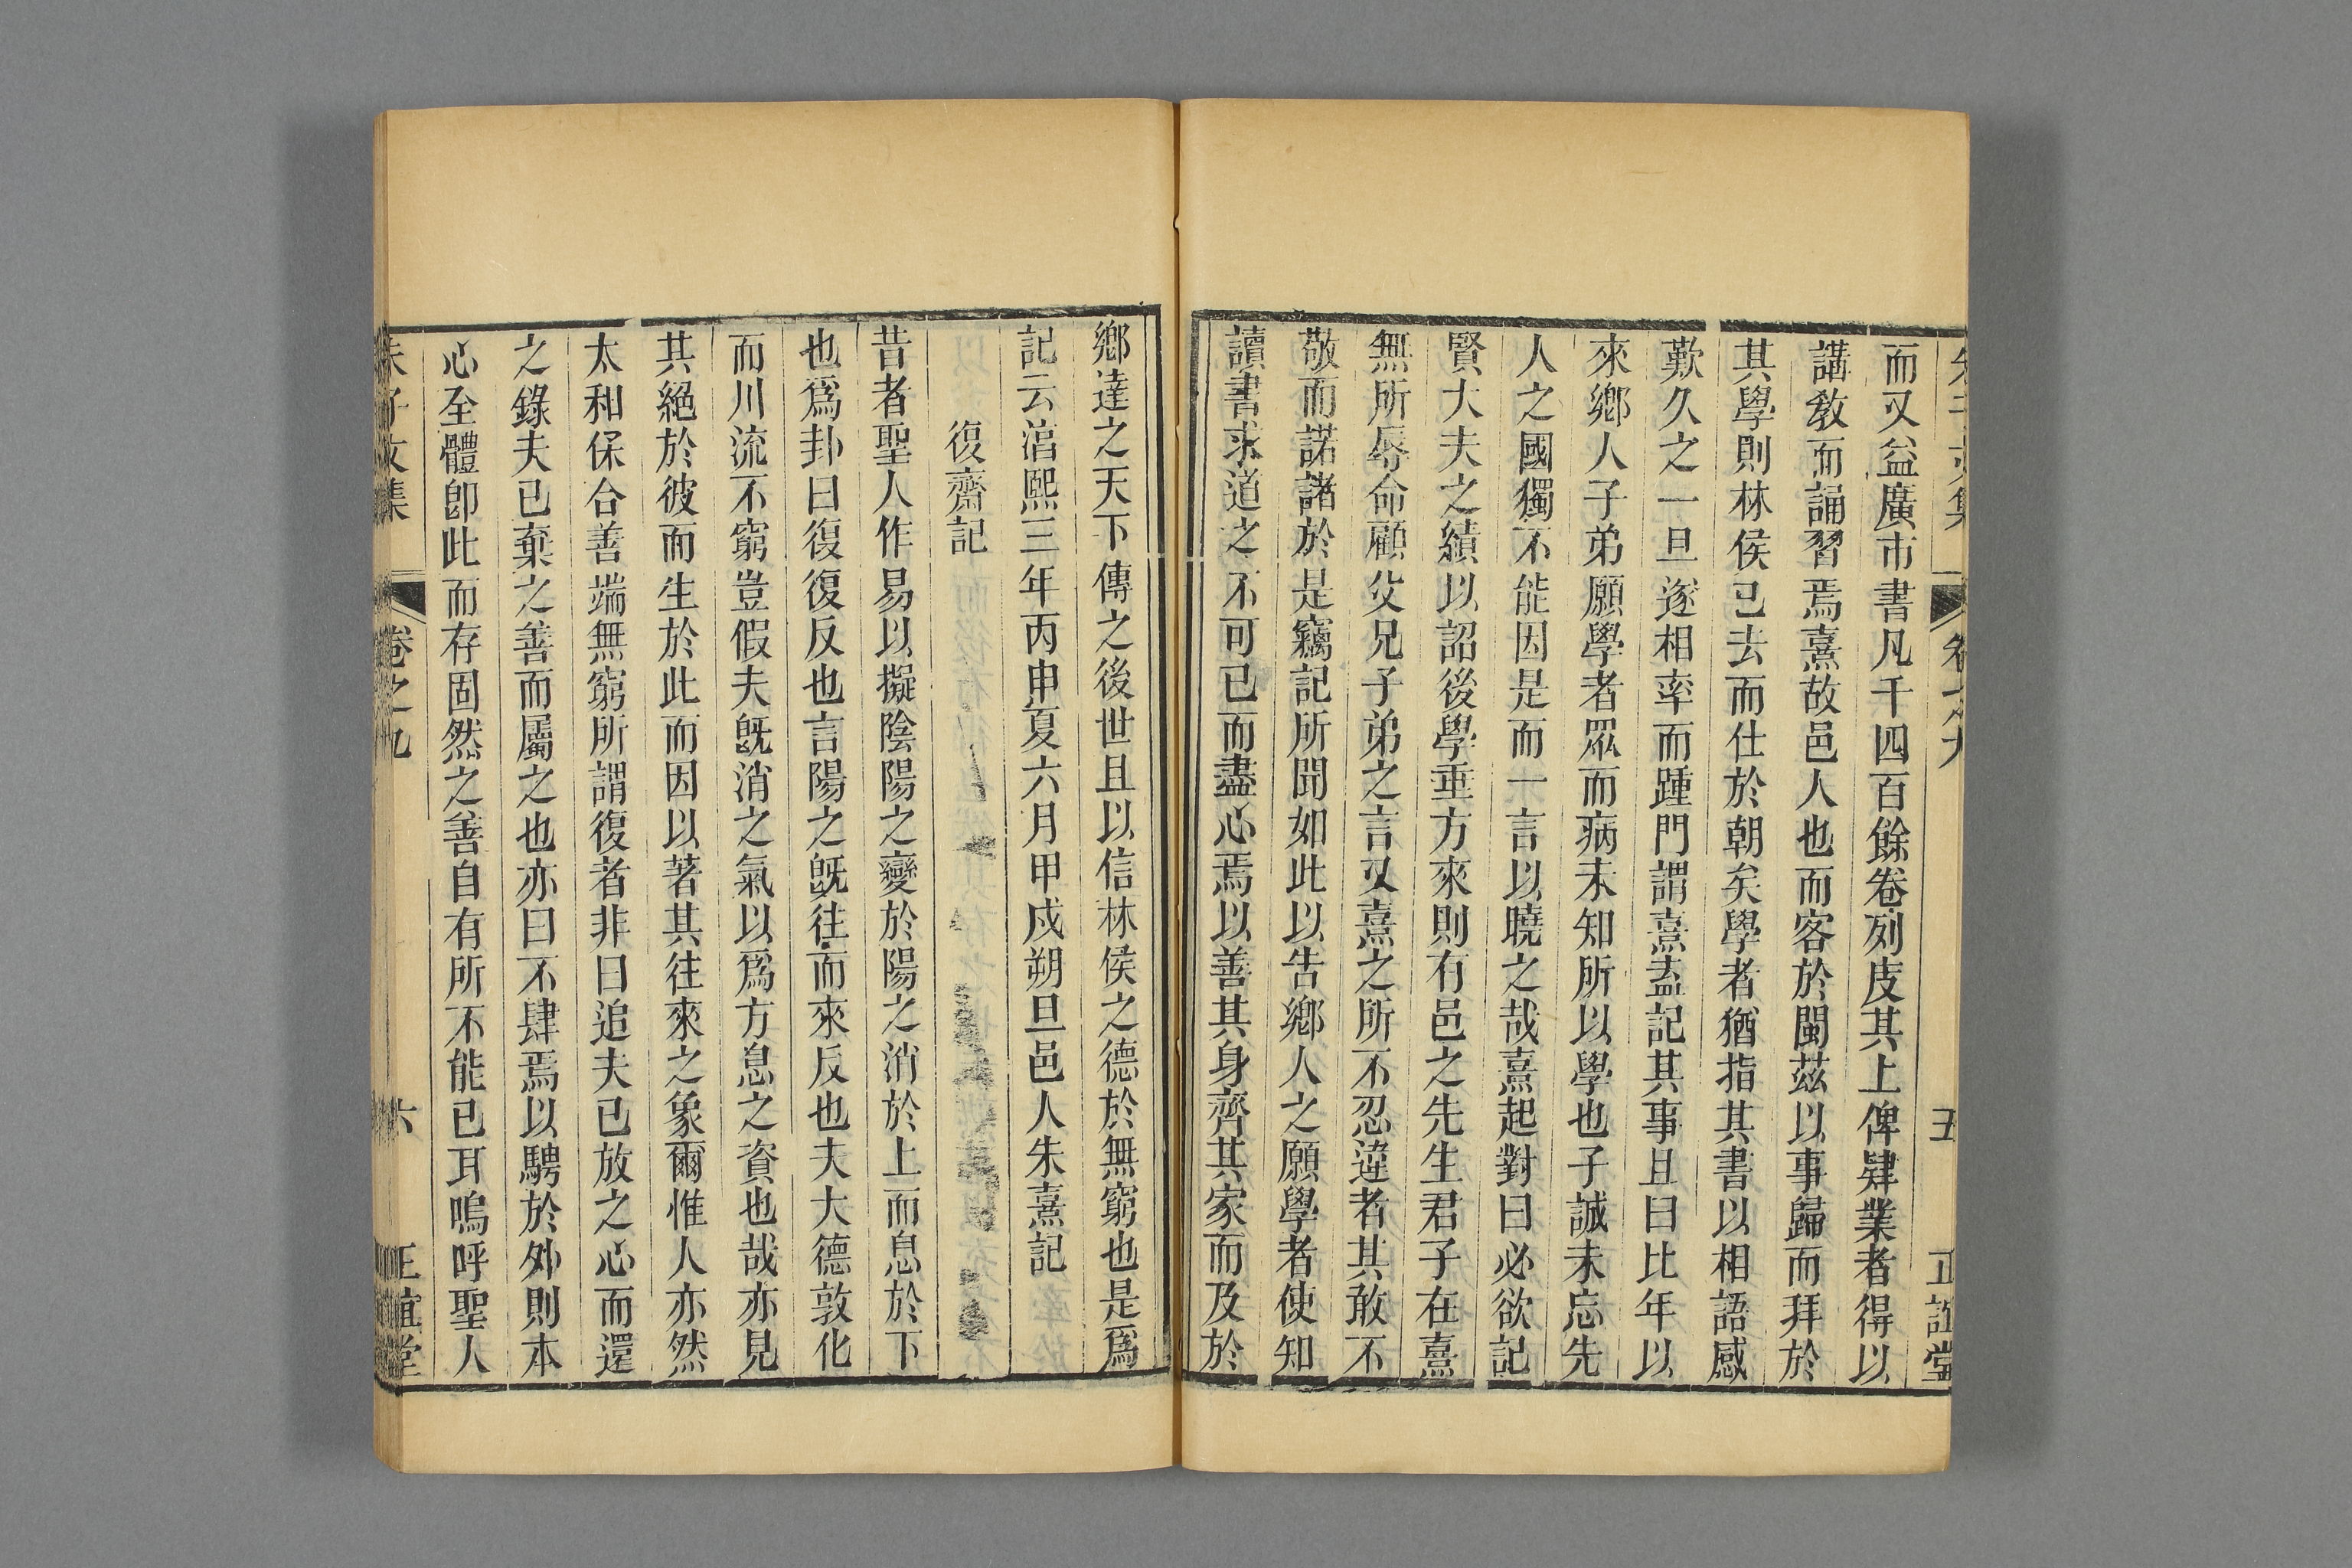 五
正誼堂
而又益廣市書凡千四百餘卷列庋其上俾肄業者得以
講敎而誦習焉熹故邑人也而客於閩茲以事歸而拜於
其學則林侯已去而仕於朝矣學者猶指其書以相語感
歎久之一旦遂相率而踵門謂熹盍記其事且曰比年以
來鄉人子弟願學者眾而病未知所以學也子誠未忘先
人之國獨不能因是而一言以曉之哉熹起對曰必欲記
賢大夫之績以詔後學垂方來則有邑之先生君子在熹
無所辱命顧父兄子弟之言又熹之所不忍違者其敢不
敬而諾諸於是竊記所聞如此以告鄉人之願學者使知
讀書求道之不可已而盡心焉以善其身齊其家而及於
鄉達之天下傳之後世且以信林侯之德於無窮也是爲
記云湻熙三年丙申夏六月甲戍朔旦邑人朱熹記
復齋記
昔者聖人作易以擬陰陽之變於陽之消於上而息於下
也爲卦曰復復反也言陽之旣往而來反也夫大德敦化
而川流不窮豈假夫旣消之氣以爲方息之資也哉亦見
其絕於彼而生於此而因以著其往來之象爾惟人亦然
太和保合善端無窮所謂復者非曰追夫已放之心而還
之錄夫已棄之善而屬之也亦曰不肆焉以騁於外則本
心至體卽此而存固然之善自有所不能已耳嗚呼聖人
朱子文集
卷之九
六
正誼堂